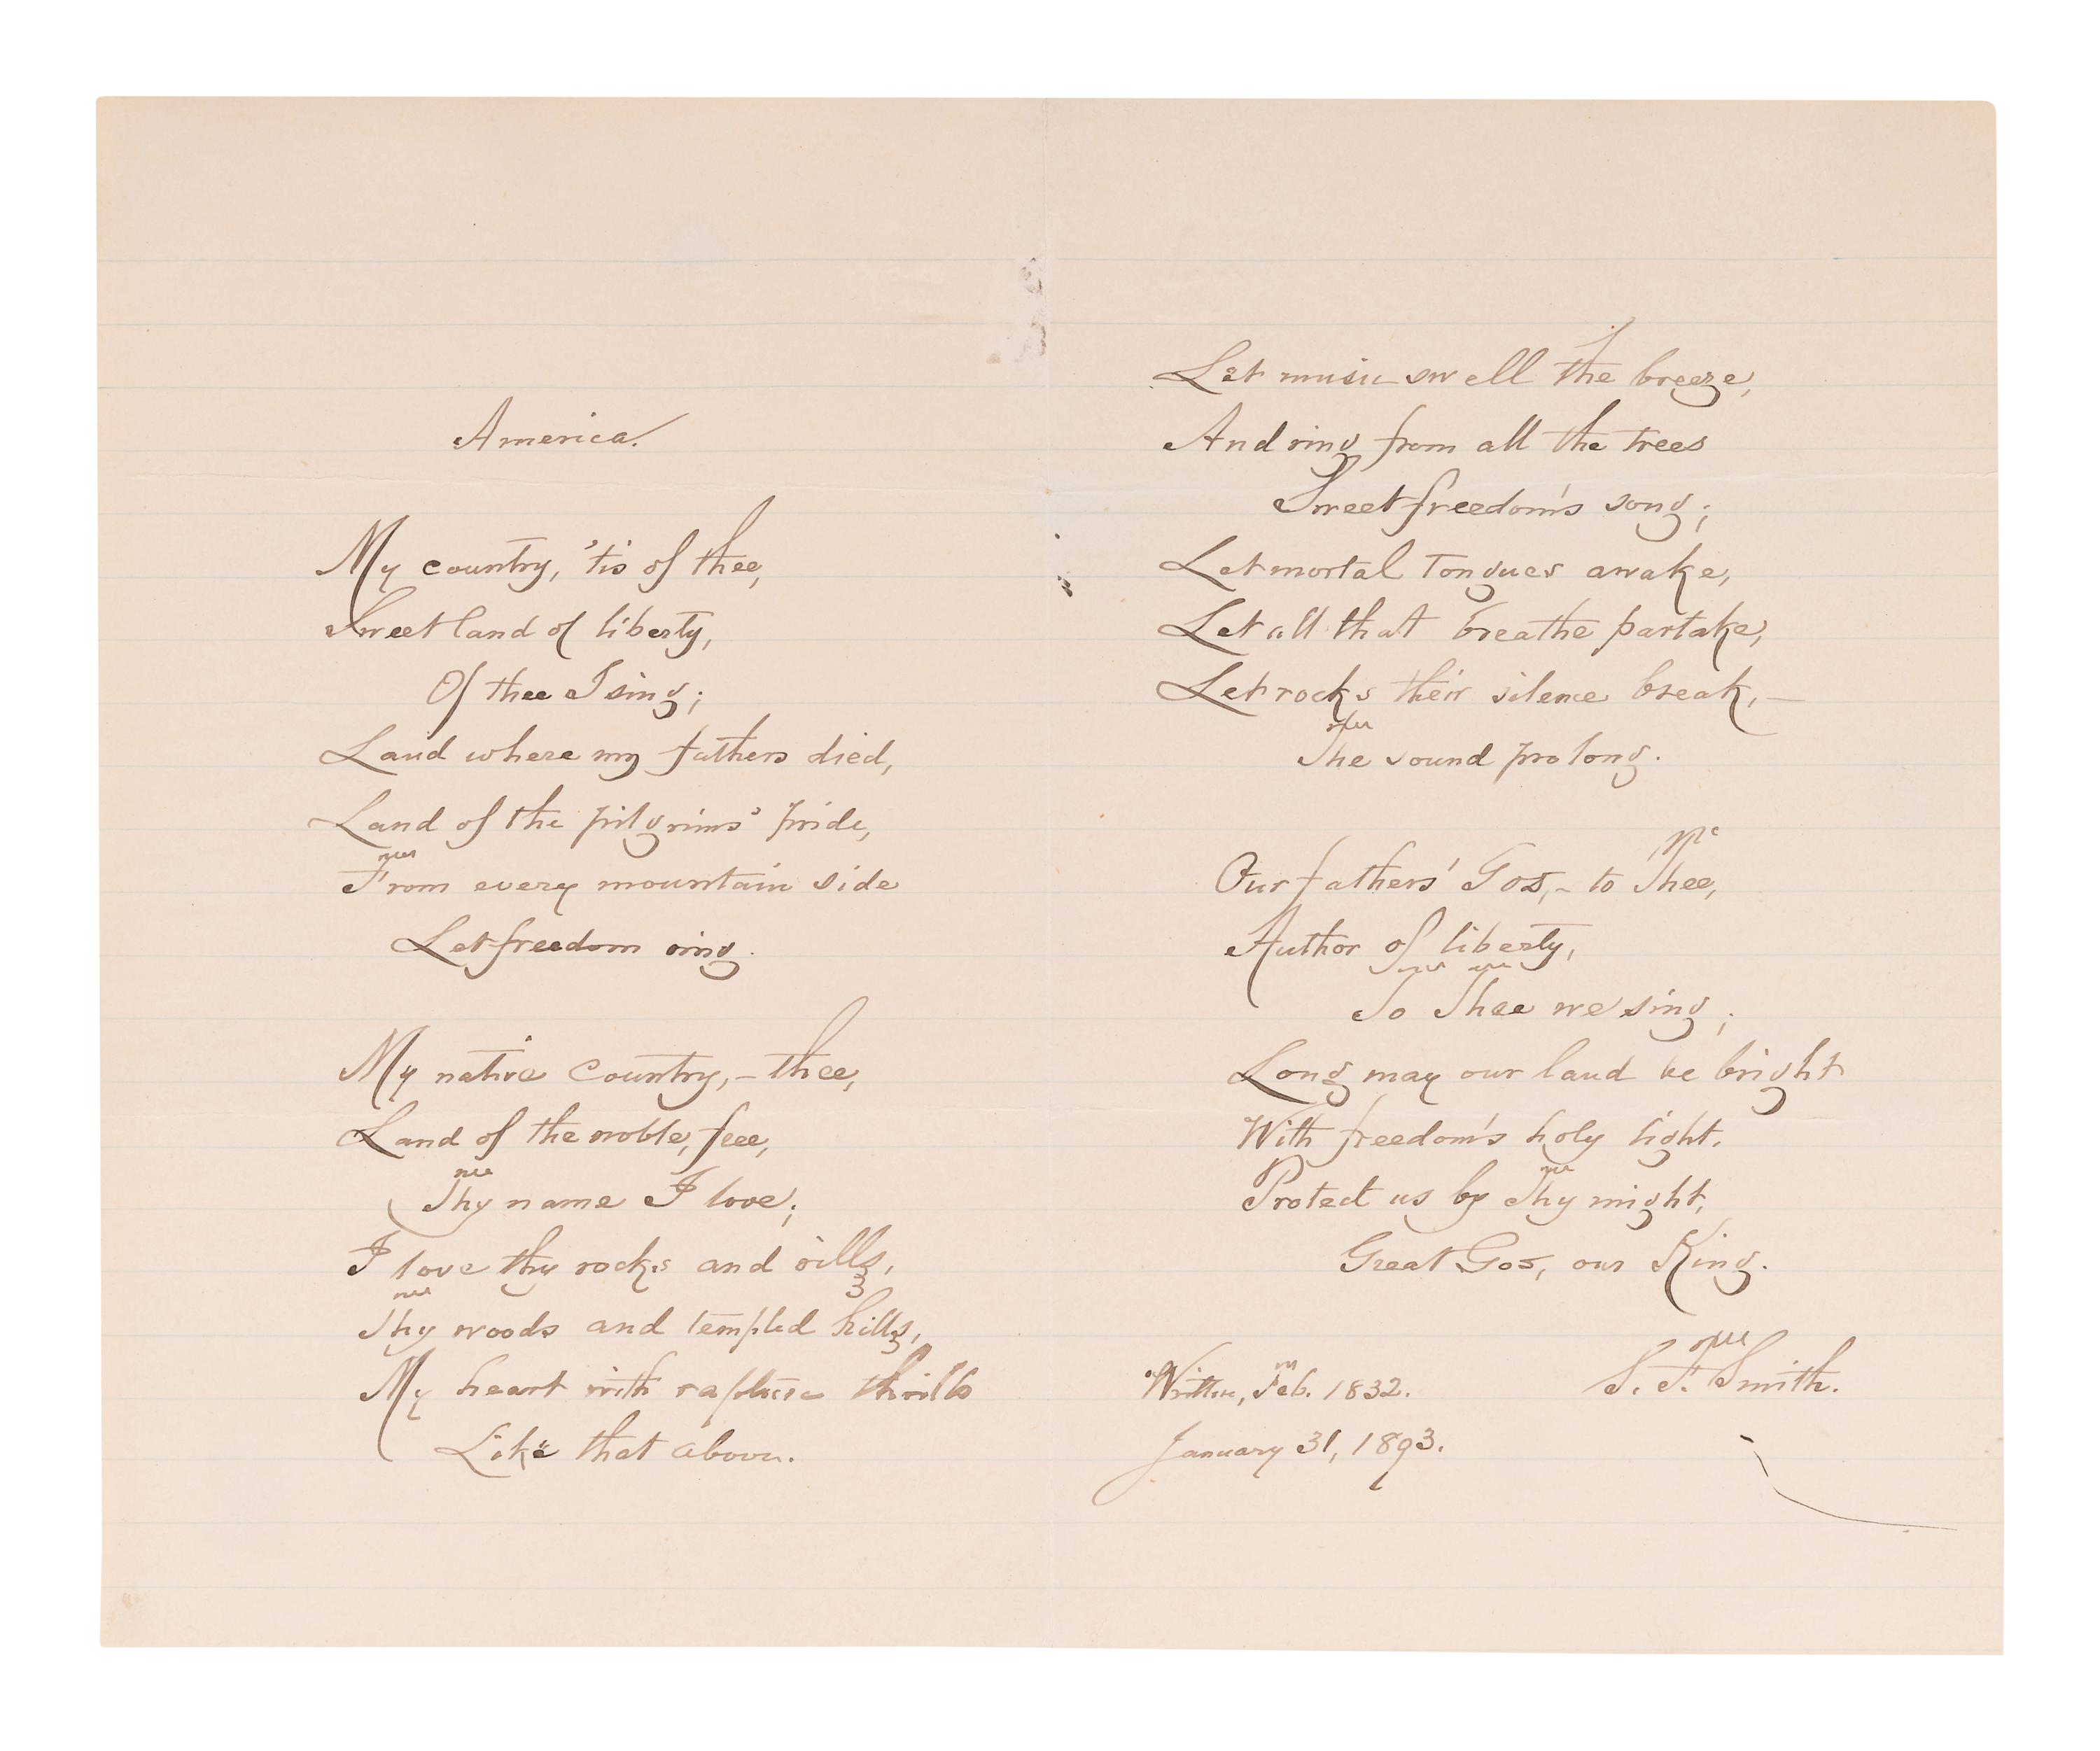 America.
My country, 'tis of thee,
Sweet land of liberty,
Of thee I sing;
Land where my fathers died,
Land of the pilgrims' pride,
From every mountain side
Let freedom ring.
My native country, – thee,
Land of the noble, free,
Thy name I love;
I love thy rocks and rills,
Thy woods and templed hills,
My heart with rapture thrills
Like that above.
Let music swell the breeze,
And ring from all the trees
Sweet freedom's song;
Let mortal tongues awake,
Let all that breathe partake,
Let rocks their silence break, –
The sound prolong.
Our fathers' God, – to Thee,
Author of liberty,
To Thee we sing;
Long may our land be bright
With freedom's holy light.
Protect us by Thy might,
Great God, our King.
S. F. Smith.
Written, Feb. 1832.
January 31, 1893.